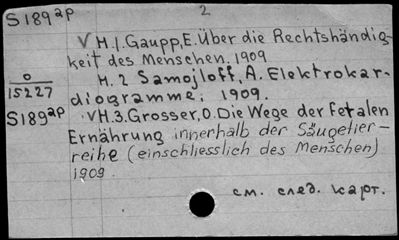 S189ap 2
VH.1.Gaupp,E.Über die Rechtshändig-
keit des Menschen. 1909
0
15227
H.2 Samojloff, A. Elektrokar-
diogramme; 1909.
S189ap VH.3.Grosser,O.Die Wege der Fetalen
Ernährung innerhalb der Säugetier-
reihe (einschliesslich des Menschen)
1909.
см. след. карт.